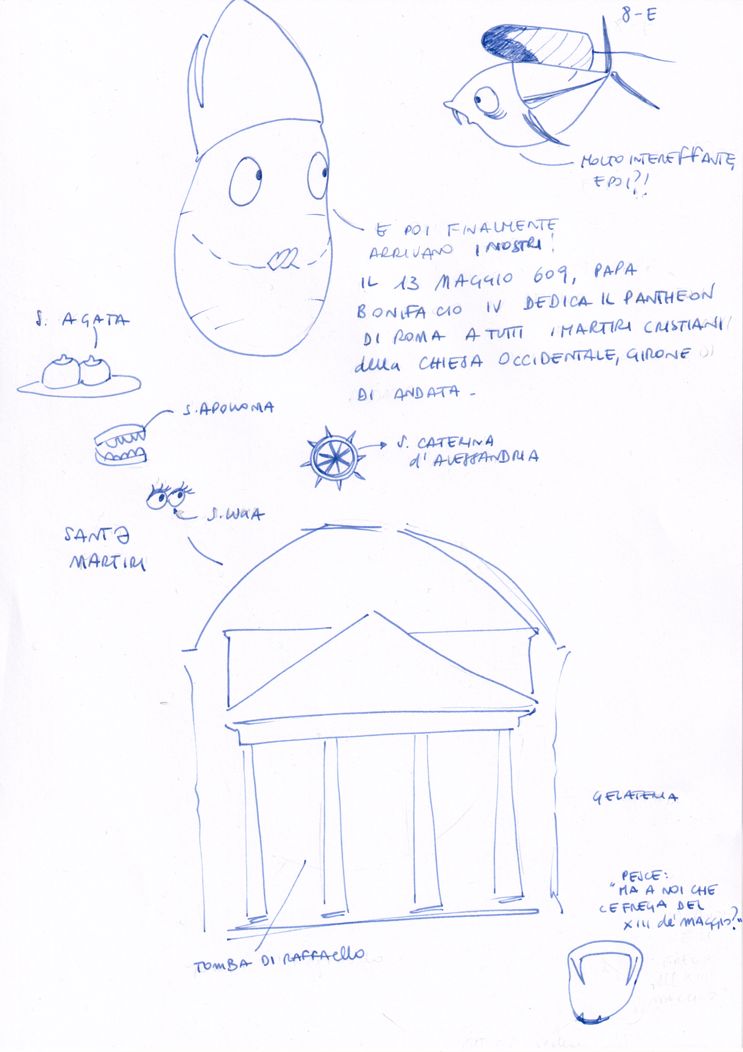 8-E
MOLTO INTEREFFANTE,
E POI?!
E POI FINALMENTE
ARRIVANO I NOSTRI!
IL 13 MAGGIO 609, PAPA
BONIFACIO IV DEDICA IL PANTHEON
DI ROMA A TUTTI I MARTIRI CRISTIANI
della CHIESA OCCIDENTALE, GIRONE
DI ANDATA -
S. AGATA
S. APOLLONIA
S. CATERINA
d'ALESSANDRIA
S. LUCIA
SANTI
MARTIRI
GELATERIA
PESCE:
"MA A NOI CHE
CE FREGA DEL
XIII de' MAGGIO?"
TOMBA DI RAFFAELLO